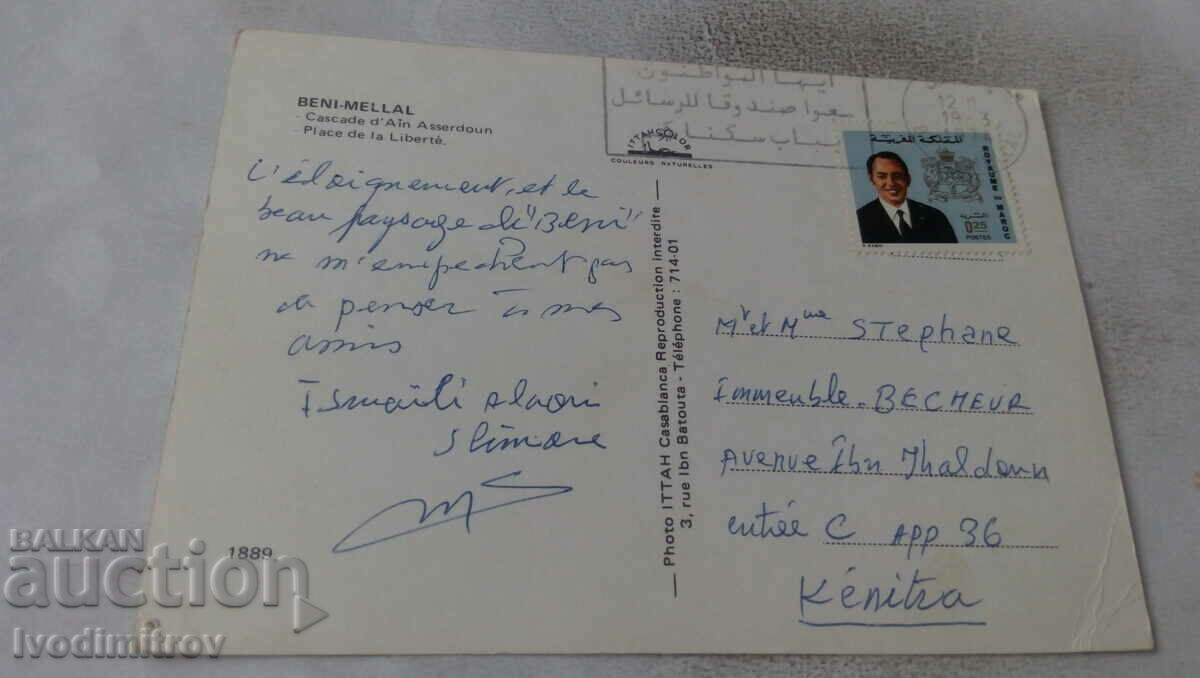 BENI-MELLAL
- Cascade d'Aïn Asserdoun
- Place de la Liberté.
L'éloignement, et le
beau paysage de "Beni"
ne m'empechent pas
de penser à mes
amis
Ismaïli Alaoui
Slimane
1889
ايها المواطنون
ضعوا صندوقا للرسائل
بباب سكناكم
ITTAHCOLOR
COULEURS NATURELLES
12
19 3
المملكة المغربية
ROYAUME DU MAROC
0.25
POSTES
Photo ITTAH Casablanca Reproduction interdite
3, rue Ibn Batouta - Téléphone : 714-01
Mr et Mme STEphane
Immeuble BECHEUR
Avenue Ibn Khaldoun
entrée C APP 36
Kénitra
BALKAN
auction
Ivodimitrov